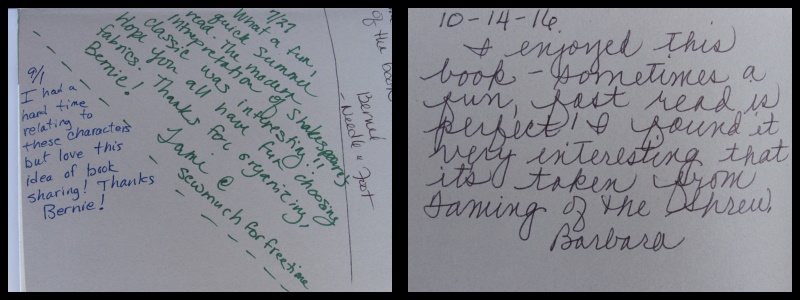 9/1
I had a
hard time
relating to
these characters
but love this
idea of book
sharing! Thanks
Bernie!
7/27
What a fun,
quick summer
read. The modern
interpretation of Shakespeare's
classic was interesting!!
Hope you all have fun choosing
fabrics. Thanks for organizing,
Bernie!
Jamie @
sewmuchforfreetime
of the book
Bernie
- Needle & Foot
10-14-16
I enjoyed this
book - sometimes a
fun, fast read is
perfect! I found it
very interesting that
its taken from
Taming of the Shrew.
Barbara